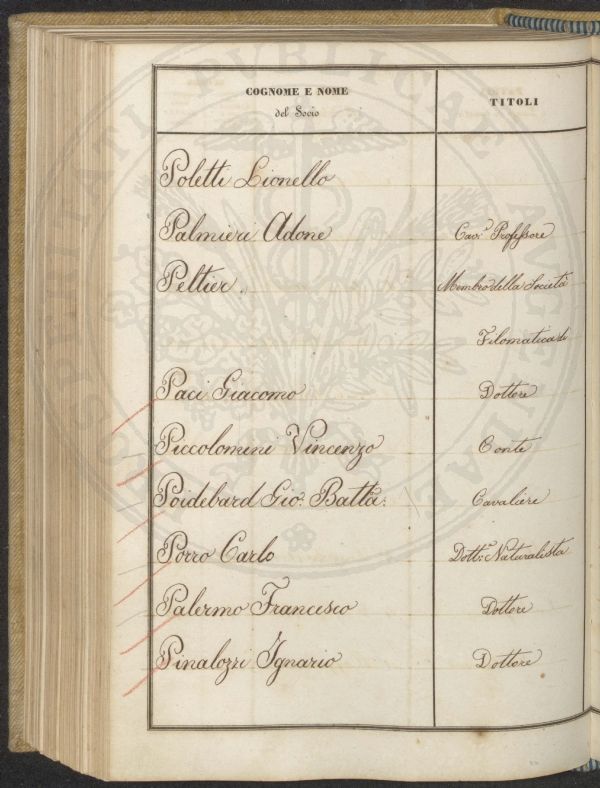 COGNOME E NOME
del Socio
TITOLI
Poletti Lionello
Palmieri Adone
Cav.e Professore
Peltier.
Membro della Società
Filomatica di
Paci Giacomo
Dottore
Piccolomini Vincenzo
Conte
Poidebard Gio. Batta:
Cavaliere
Porro Carlo
Dott.e Naturalista
Palermo Francesco
Dottore
Pinalozzi Ignazio
Dottore